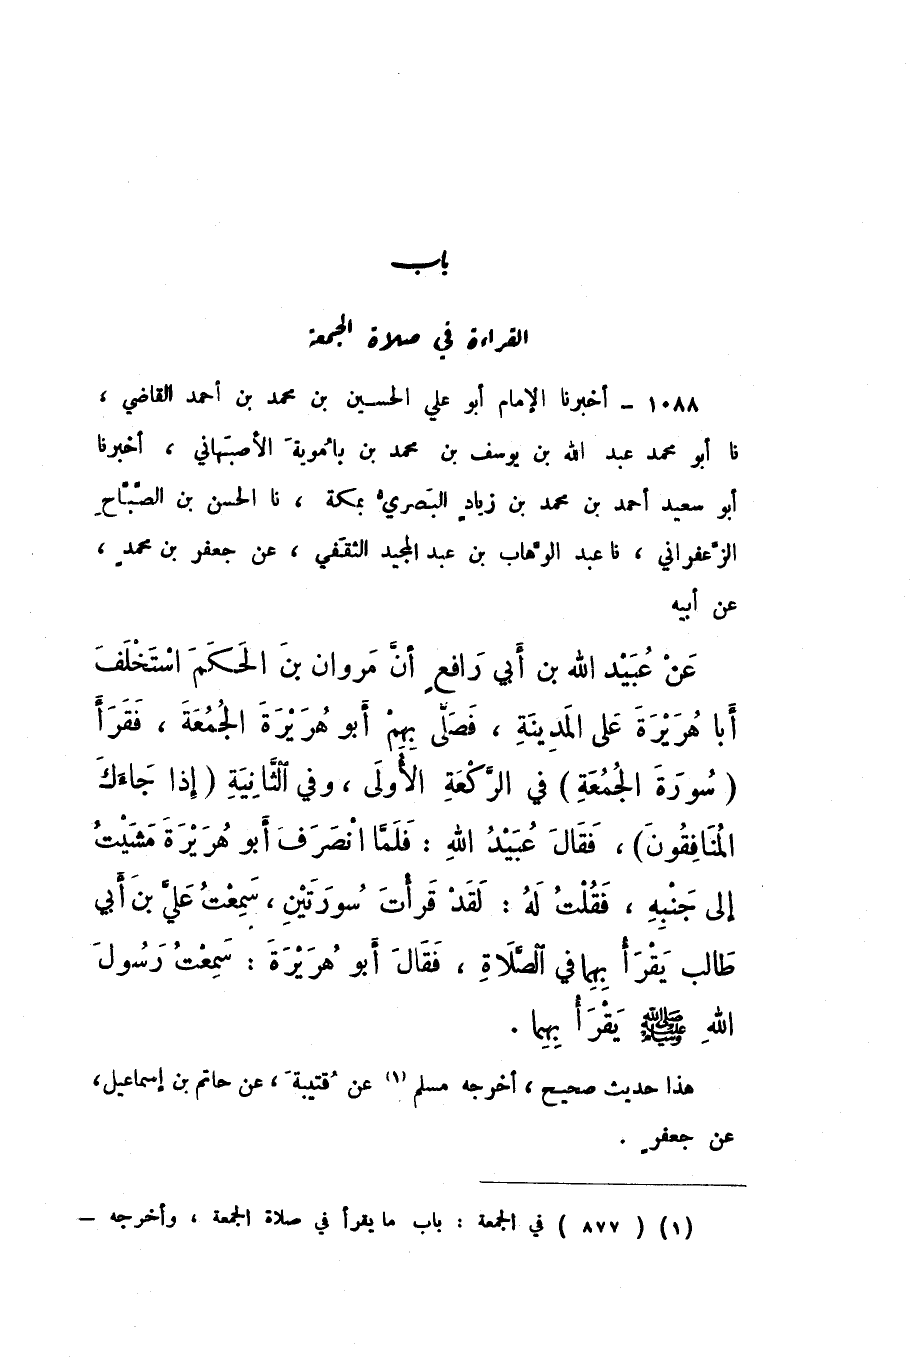 باب
القراءة في صلاة الجمعة
١٠٨٨ – أخبرنا الإمام أبو علي الحسين بن محمد بن أحمد القاضي ،
نا أبو محمد عبد الله بن يوسف بن محمد بن بامُويةَ الأصبَهاني ، أخبرنا
أبو سعيد أحمد بن محمد بن زيادٍ البَصريُّ بمكة ، نا الحسن بن الصَّبَّاحِ
الزَّعفراني ، نا عبد الوهَّاب بن عبد المجيد الثقَفي ، عن جعفر بن محمدٍ ،
عن أبيه
عَنْ عُبَيْد الله بن أَبي رَافعٍ أنَّ مَروان بنَ الحَكَمَ اسْتَخْلَفَ
أَبا هُرَيْرَةَ عَلى المَدِينَةِ ، فَصَلَّى بِهِمْ أَبو هُرَيْرَةَ الجُمُعَةَ ، فَقَرَأَ
( سُورَةَ الجُمُعَةِ ) في الرَّكْعَةِ الأُولَى ، وفي الثَّانِيَةِ ( إذا جَاءَكَ
المُنَافِقُونَ ) ، فَقَالَ عُبَيْدُ اللهِ : فَلَمَّا انْصَرَفَ أَبو هُرَيْرَةَ مَشَيْتُ
إلى جَنْبِهِ ، فَقُلْتُ لَهُ : لَقَدْ قَرأْتَ سُورَتَيْنِ ، سَمِعْتُ عَليَّ بنَ أَبي
طَالب يَقْرَأُ بِهِما في الصَّلَاةِ ، فَقَالَ أَبو هُرَيْرَةَ : سَمِعْتُ رَسُولَ
اللهِ ﷺ يَقْرَأُ بِهِما .
هذا حديث صحيح ، أخرجه مسلم (١) عن قُتيبةَ ، عن حاتم بن إسماعيل ،
عن جعفرٍ .
(١) ( ٨٧٧ ) في الجمعة : باب ما يقرأ في صلاة الجمعة ، وأخرجه –